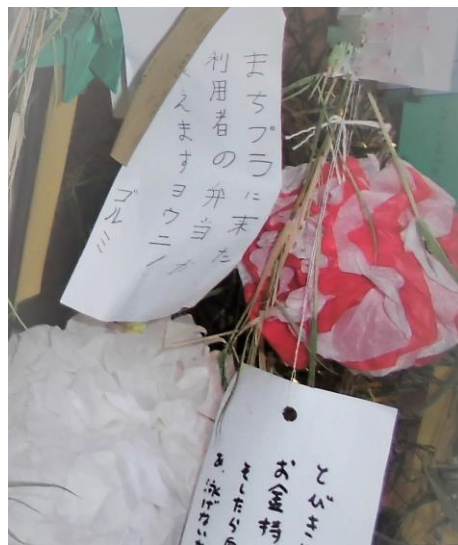 まちプラに来た
利用者の弁当が
えますヨウニ！
ゴルミ
とびき
お金持
そしたら
あ、泳げない